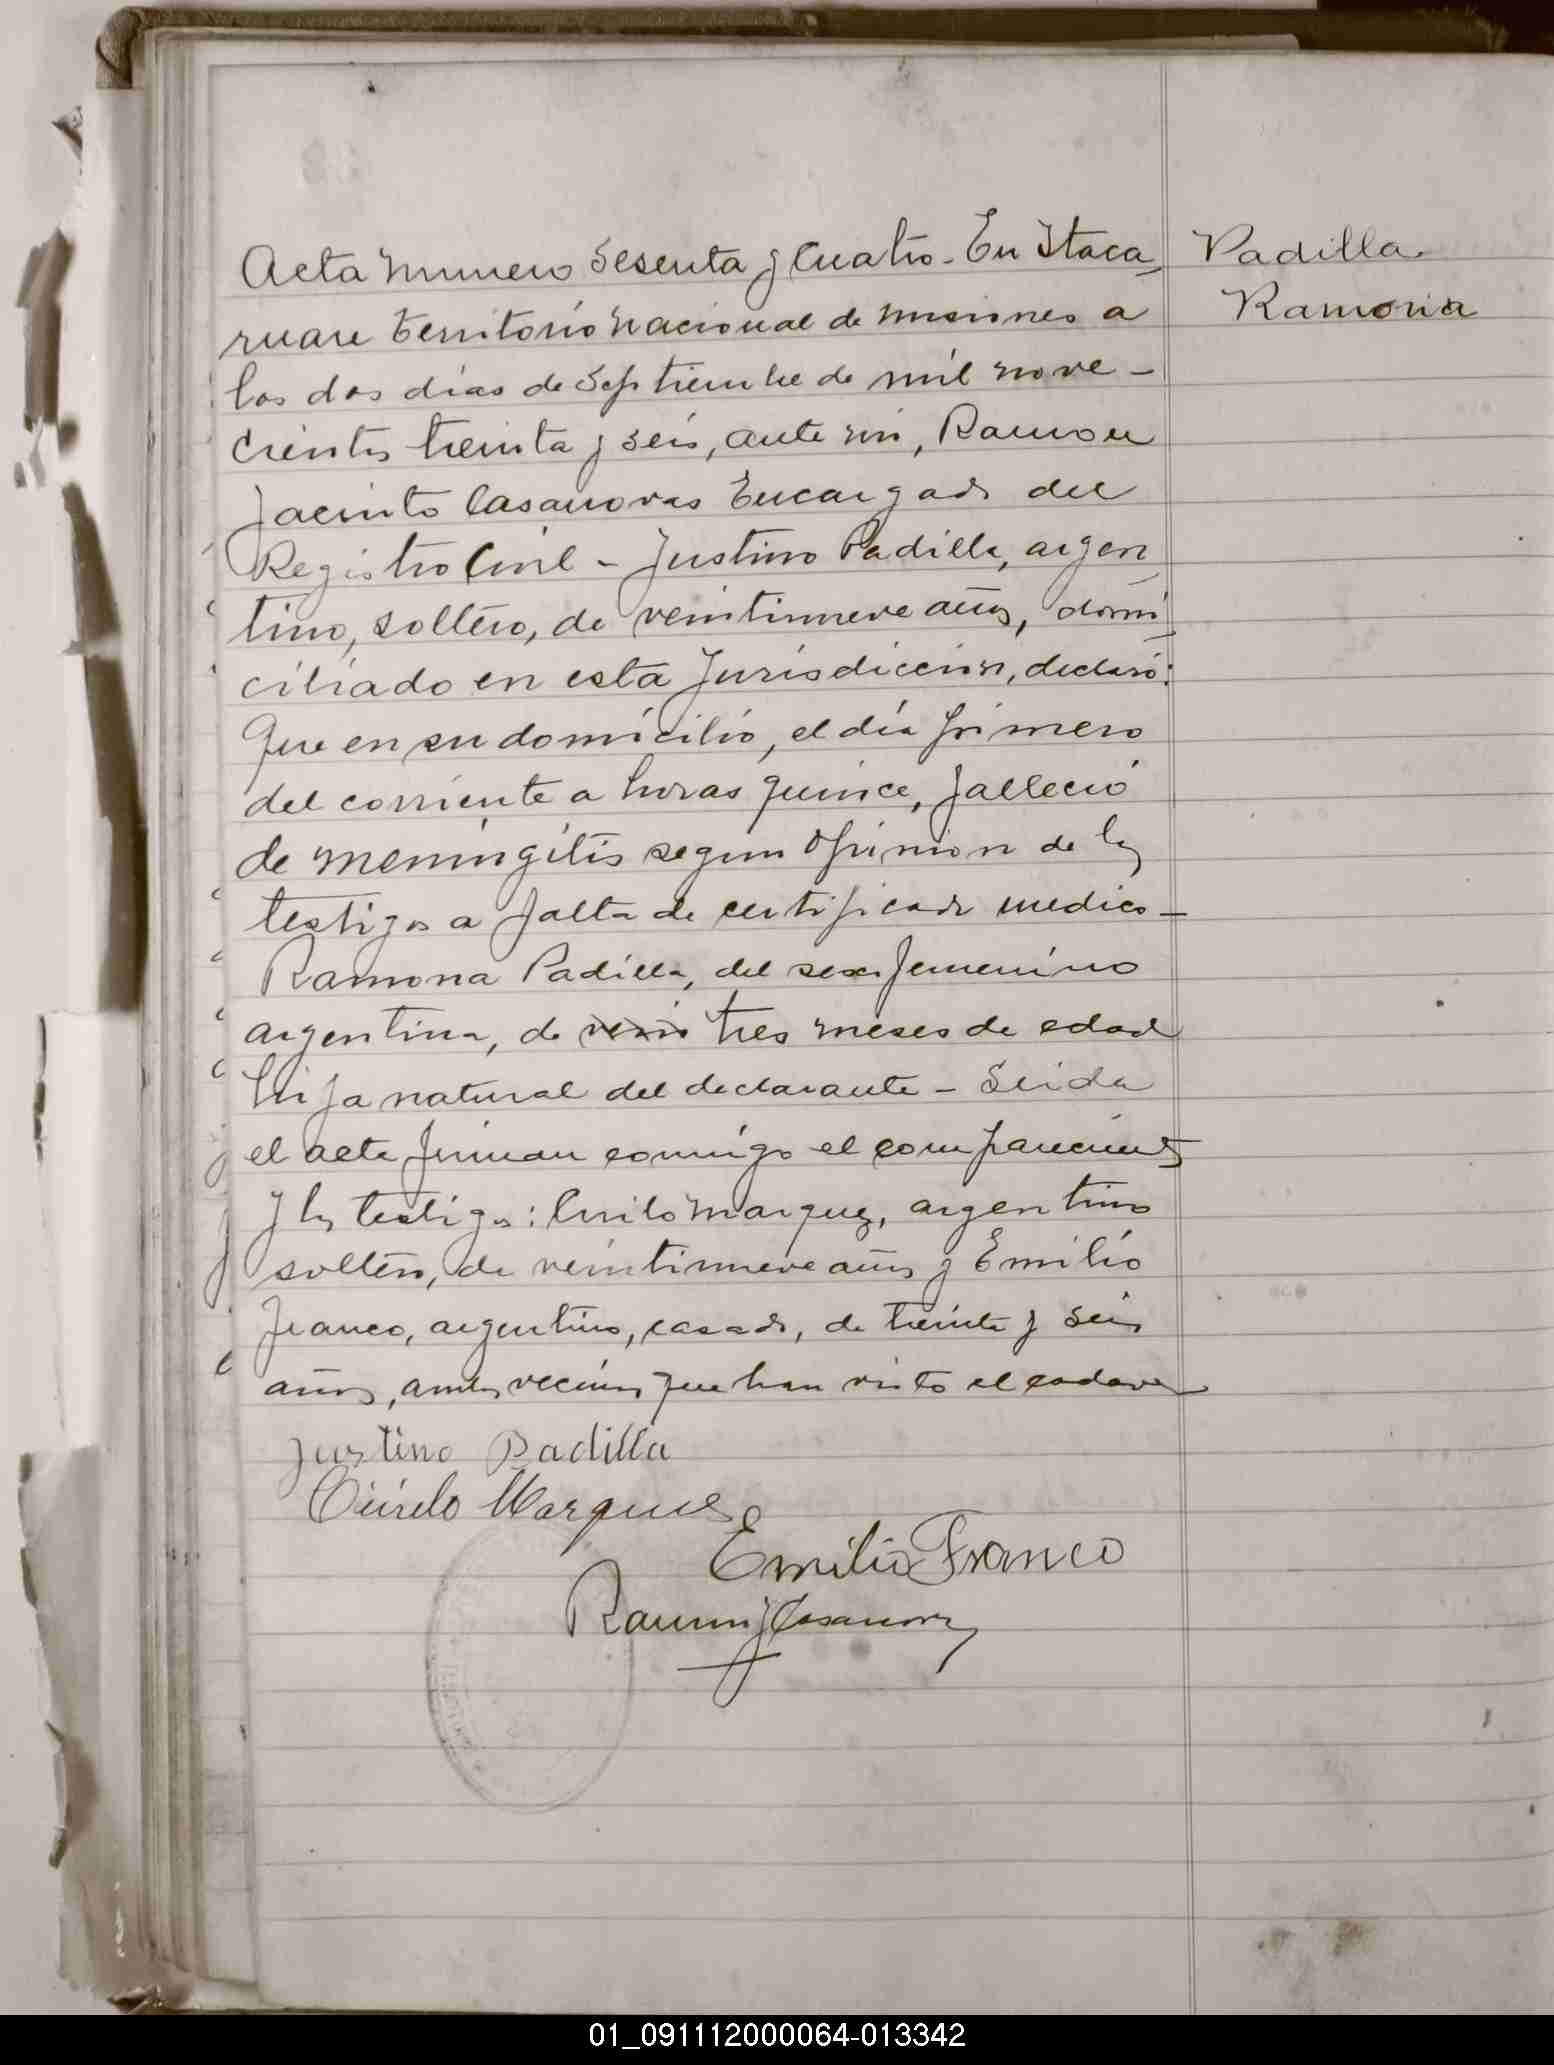 Acta Numero Sesenta y Cuatro - En Itaca-
ruare Territorio Nacional de Misiones a
los dos dias de Septiembre de mil nove-
cientos treinta y seis, ante mi, Ramon
Jacinto Casanovas Encargado del
Registro Civil - Justino Padilla, argen
tino, soltero, de veintinueve años, domi
ciliado en esta Jurisdiccion, declaró:
Que en su domicilio, el día primero
del corriente a horas quince, falleció
de meningitis segun opinion de los
testigos a falta de certificado medico -
Ramona Padilla, del sexo femenino
argentina, de tres meses de edad
hija natural del declarante - Leida
el acta firman conmigo el compareciente
y los testigos: Cirilo Marquez, argentino
soltero, de veintinueve años y Emilio
Franco, argentino, casado, de treinta y seis
años, ambos vecinos que han visto el cadaver
Justino Padilla
Cirilo Marques
Emilio Franco
Ramon J Casanovas
Padilla
Ramona
01_091112000064-013342